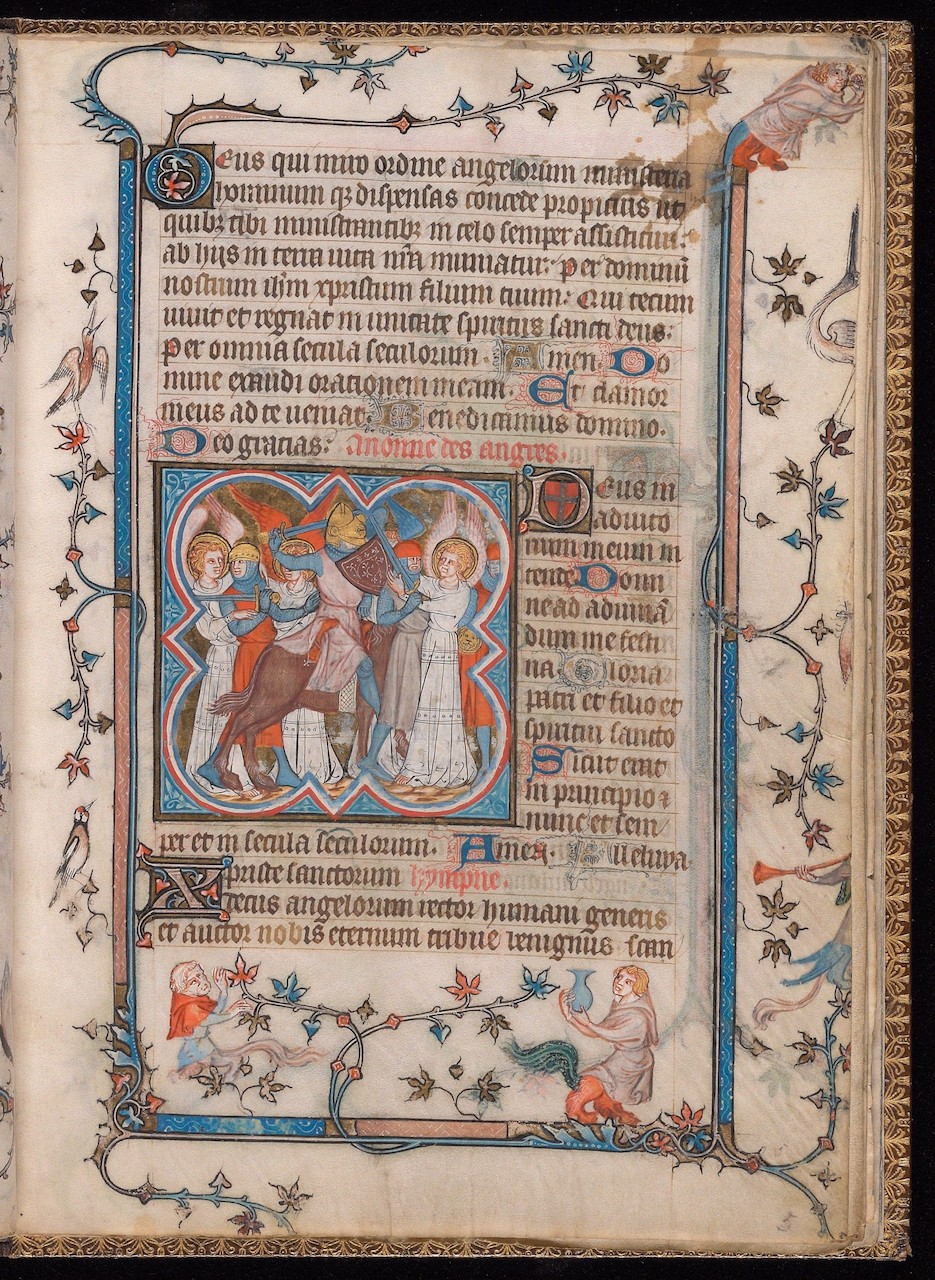 Deus qui miro ordine angelorum ministeria
hominum q3 dispensas concede propicius ut
quib3 tibi ministrantib3 in celo semper assistitur:
ab hijs in terra uita nr̃a muniatur: per dominū
nostrum ihm̄ xpristum filium tuum: Qui tecum
uiuit et regnat in unitate spiritus sancti deus:
Per omnia secula seculorum. Amen. Do
mine exaudi orationem meam. Et clamor
meus ad te ueniat. Benedicamus domino.
Deo gracias: A nonne des angres.
Deus in
adiuto
rium meum in
tende Domi
ne ad adiuuā
dum me festi
na Gloria
patri et filio et
spiritui sancto
Sicut erat
in principio ⁊
nunc et sem
per et in secula seculorum. Amen. Alleluya.
Xpriste sanctorum hympne.
decus angelorum rector humani generis
et auctor nobis eternum tribue benignus scan
5